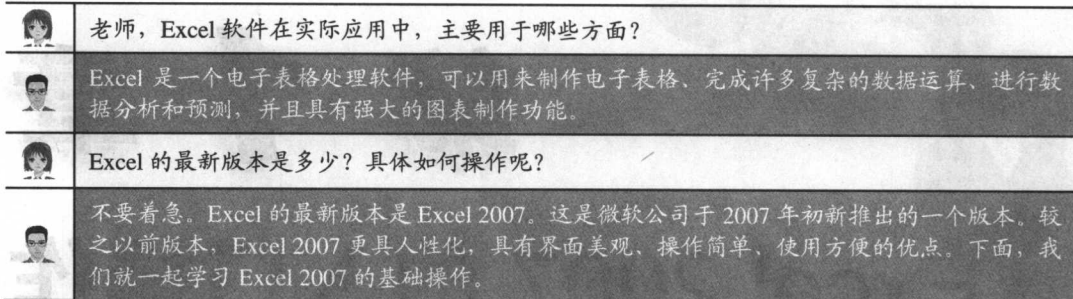 老师，Excel 软件在实际应用中，主要用于哪些方面？
Excel 是一个电子表格处理软件，可以用来制作电子表格、完成许多复杂的数据运算、进行数
据分析和预测，并且具有强大的图表制作功能。
Excel 的最新版本是多少？具体如何操作呢？
不要着急。Excel 的最新版本是 Excel 2007。这是微软公司于 2007 年初新推出的一个版本。较
之以前版本，Excel 2007 更具人性化，具有界面美观、操作简单、使用方便的优点。下面，我
们就一起学习 Excel 2007 的基础操作。